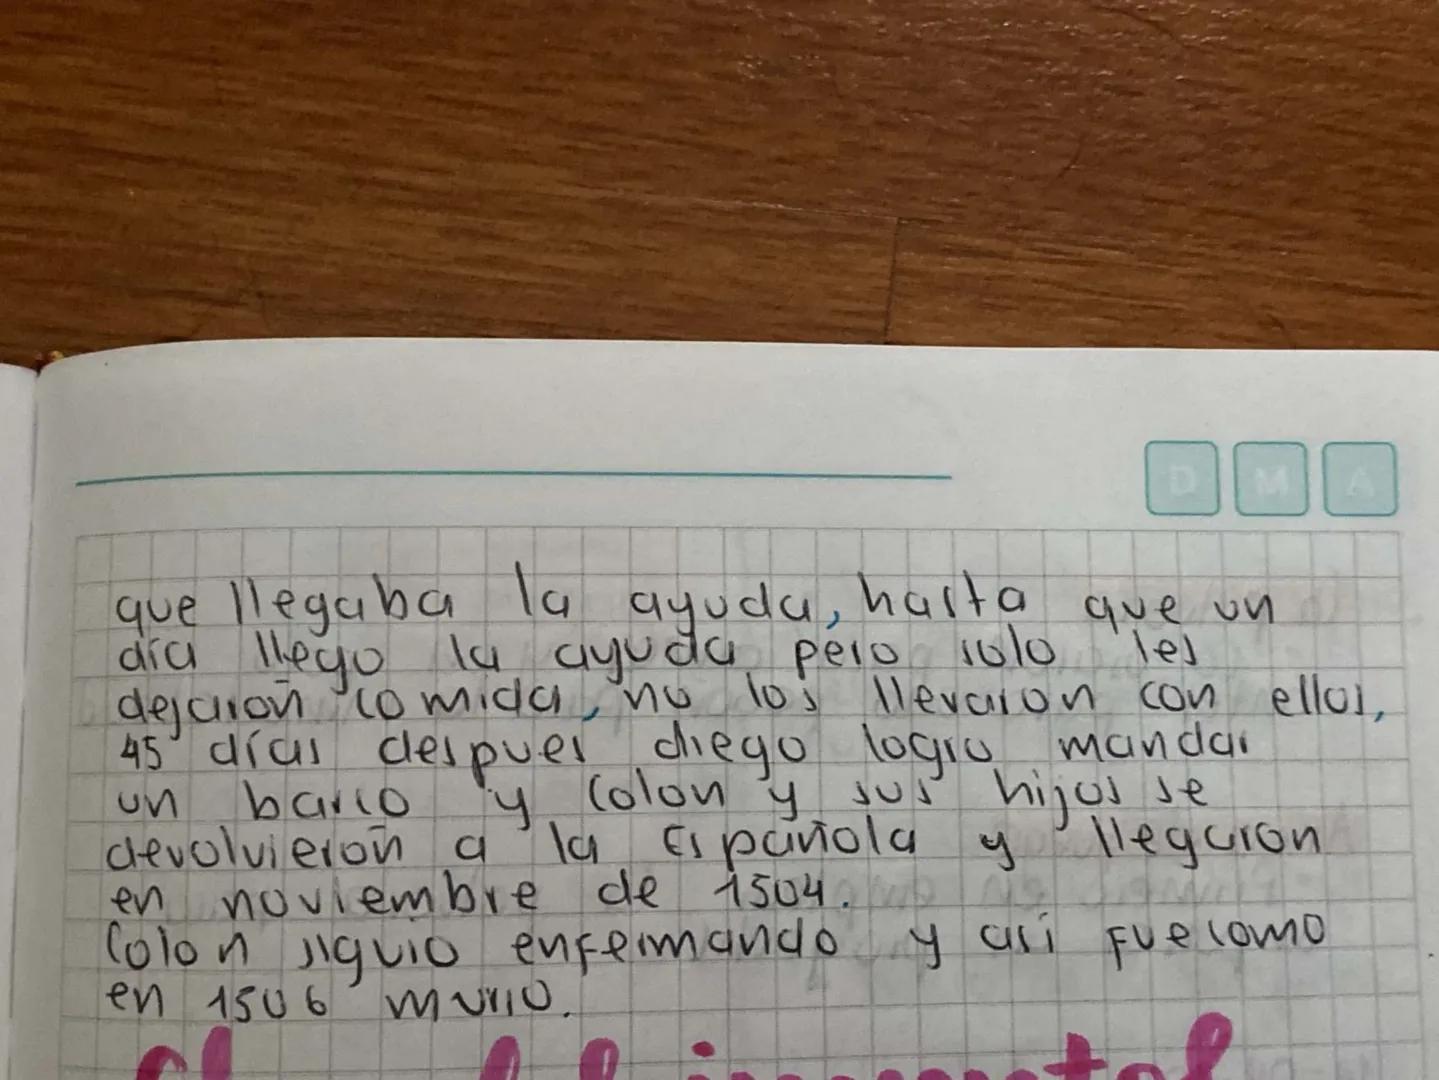 D M A
que llegaba la ayuda, hasta que un
día llego la ayuda pero solo les
dejaron comida, no los llevaron con ellos,
45 días despues diego logro mandar
un barco y Colon y sus hijos se
devolvieron a la Española y llegaron
en noviembre de 1504.
Colon siguio enfermando y así fue como
en 1506 murio.